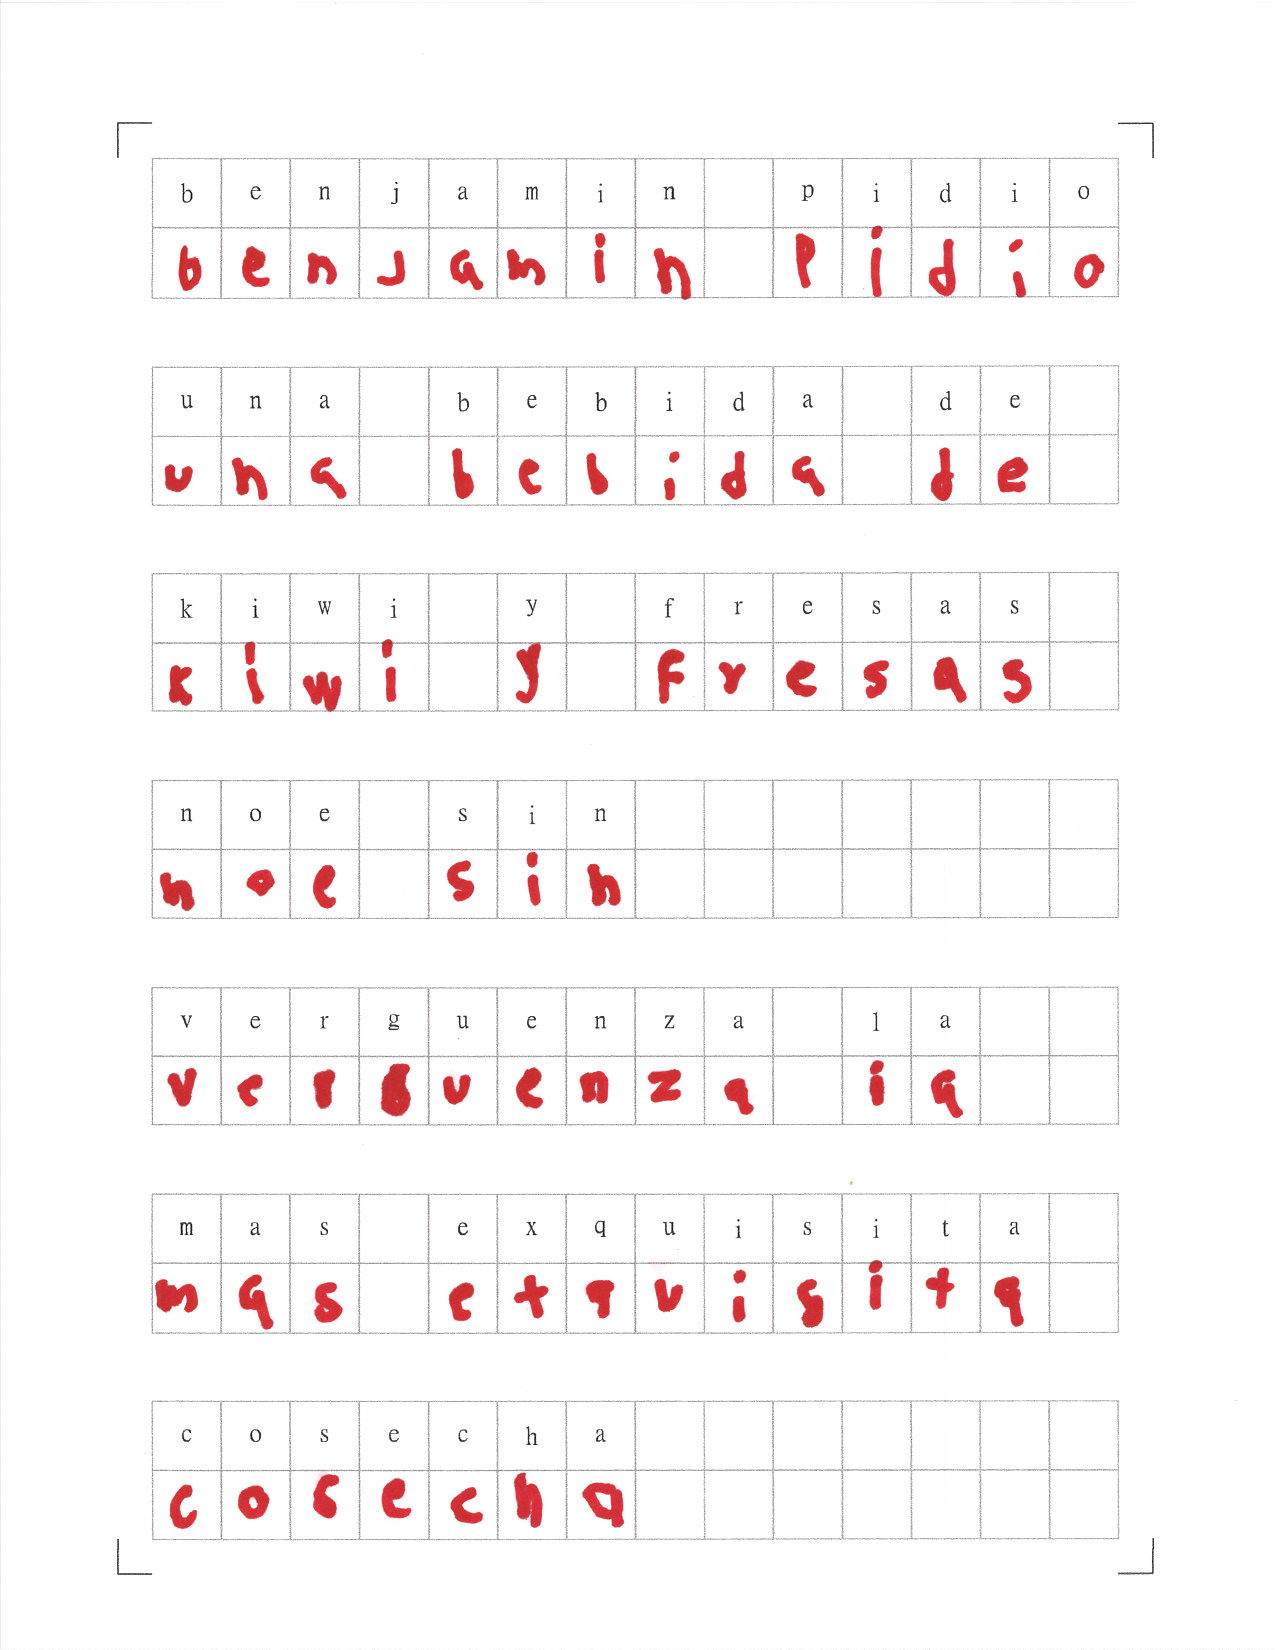 b e n j a m i n p i d i o
b e n J a m i n P i d i o
u n a b e b i d a d e
u n a b e b i d a d e
k i w i y f r e s a s
k i w i y F r e s a s
n o e s i n
n o e s i n
v e r g u e n z a l a
v e r g u e n z a i a
m a s e x q u i s i t a
m a s e t q u i s i t a
c o s e c h a
c o s e c h a